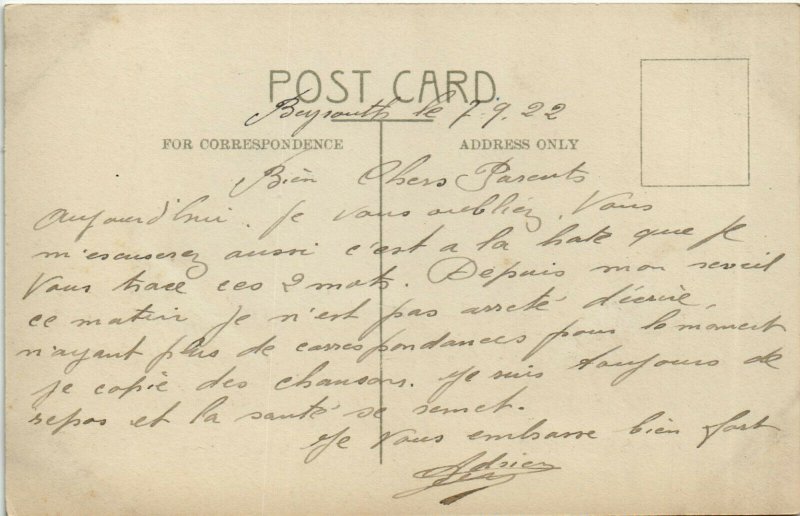 POST CARD
Beyrouth le 7.9.22
FOR CORRESPONDENCE
ADDRESS ONLY
Bien Chers Parents
Aujourd'hui. Je vous oubliez. Vous
m'escuserez aussi c'est a la hate que je
Vous trace ces 2 mots. Depuis mon reveil
ce matin je n'est pas arreté d'écrire,
n'ayant plus de correspondances pour le moment
je copie des chansons. Je suis toujours de
repos et la santé se remet.
Je Vous embrasse bien fort
Adrien